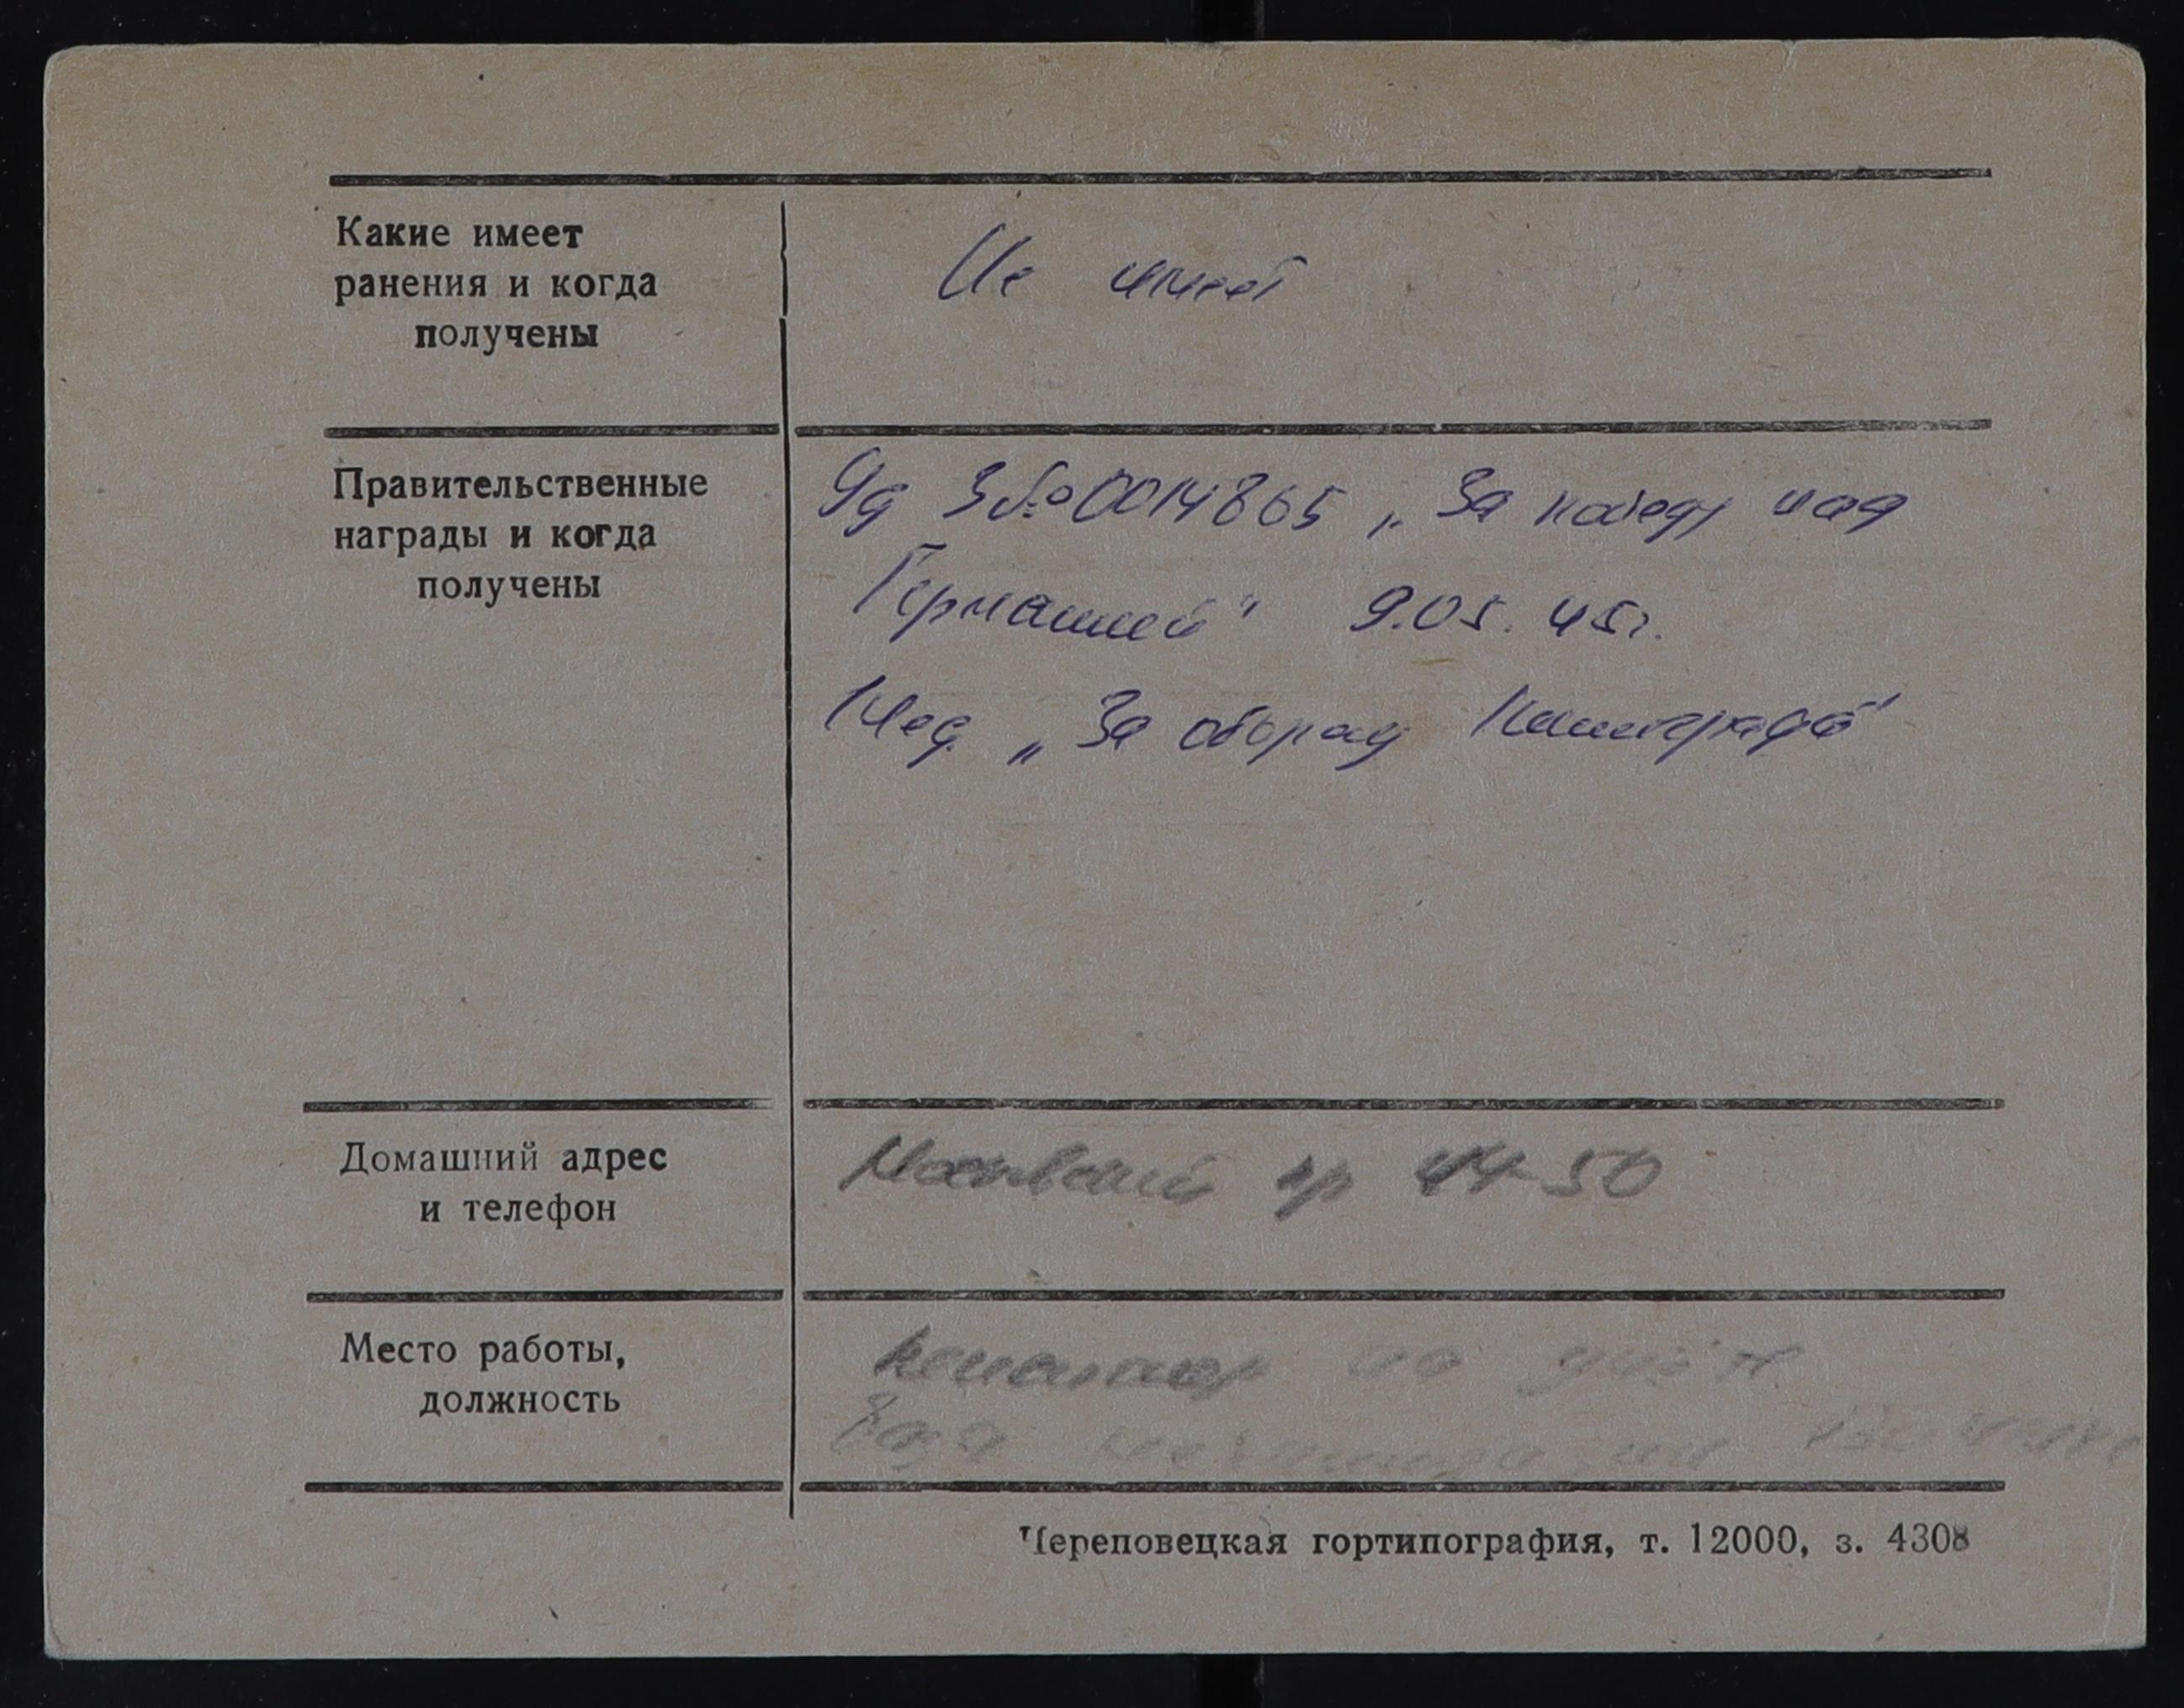 Какие имеет
ранения и когда
получены
Не имеет
Правительственные
награды и когда
получены
Уд З №0014865 „За победу над
Германией" 9.05.45г.
Мед „За оборону Ленинграда"
Домашний адрес
и телефон
Московский пр 44-50
Место работы,
должность
по учёту
Череповецкая гортипография, т. 12000, з. 4308